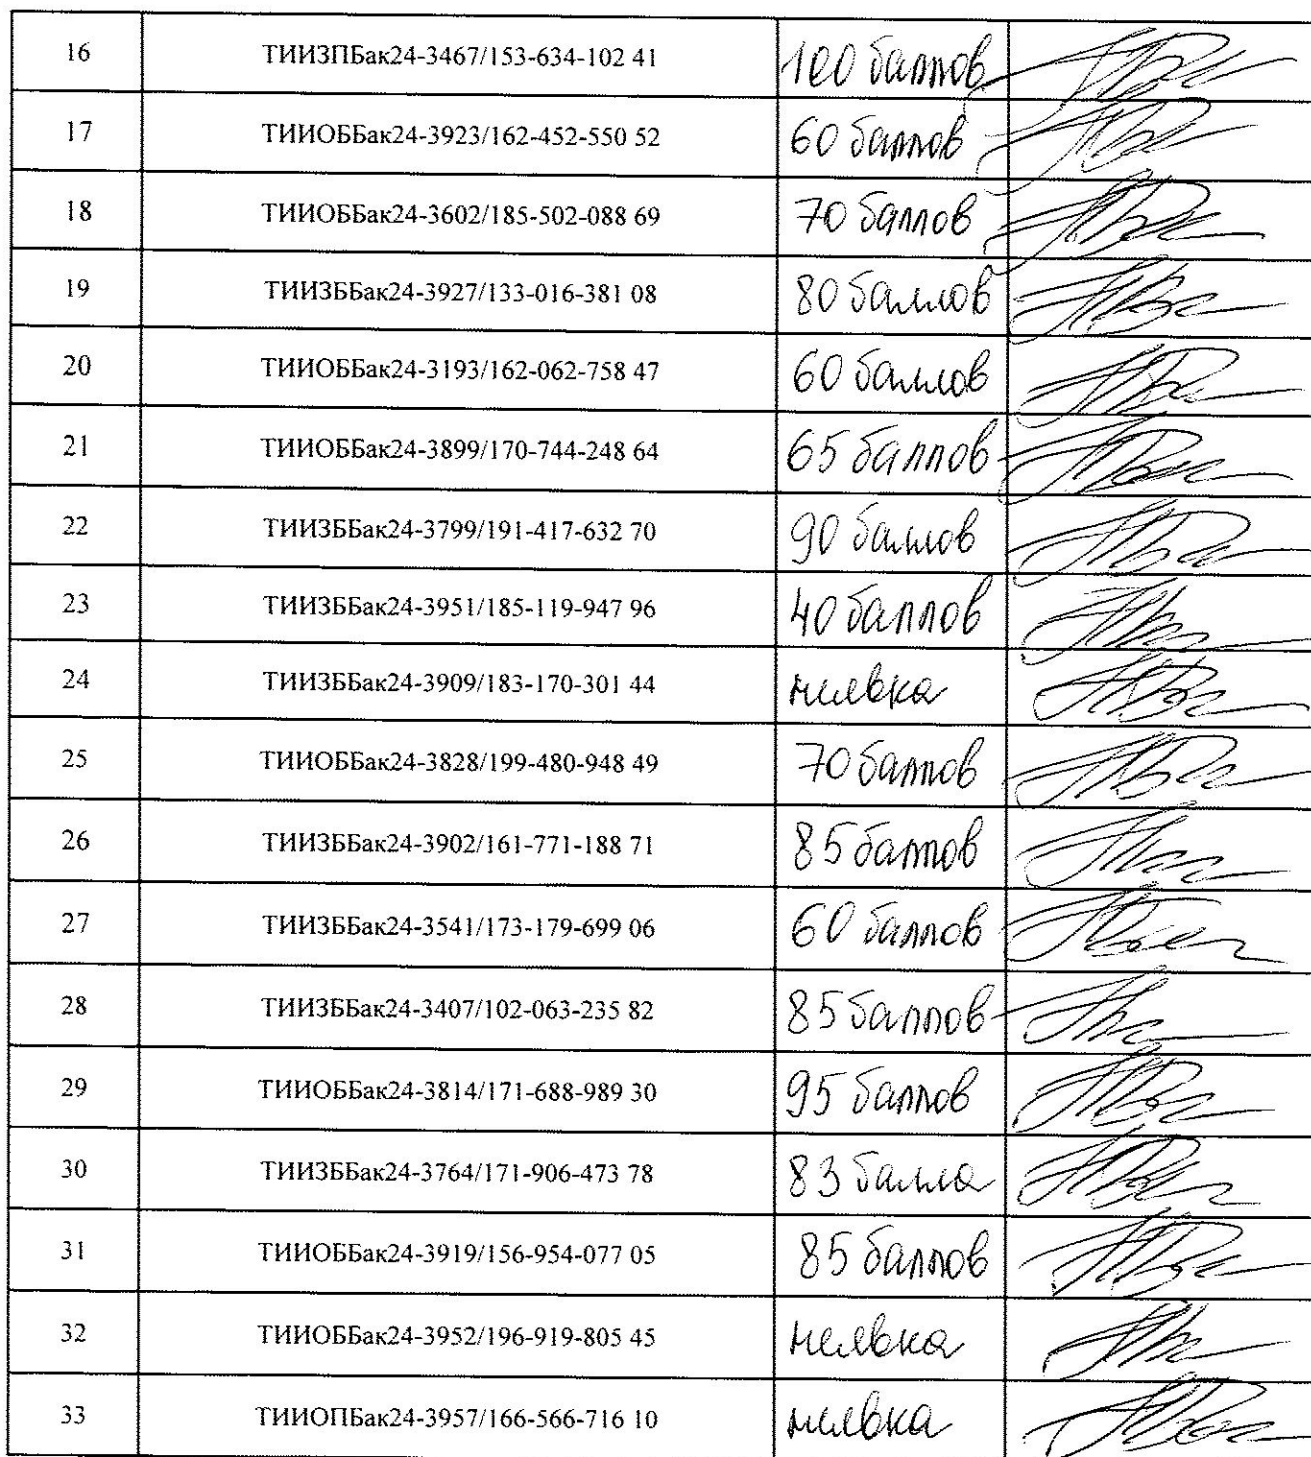 16 ТИИЗПБак24-3467/153-634-102 41 100 баллов
17 ТИИОББак24-3923/162-452-550 52 60 баллов
18 ТИИОББак24-3602/185-502-088 69 70 баллов
19 ТИИЗББак24-3927/133-016-381 08 80 баллов
20 ТИИОББак24-3193/162-062-758 47 60 баллов
21 ТИИОББак24-3899/170-744-248 64 65 баллов
22 ТИИЗББак24-3799/191-417-632 70 90 баллов
23 ТИИЗББак24-3951/185-119-947 96 40 баллов
24 ТИИЗББак24-3909/183-170-301 44 неявка
25 ТИИОББак24-3828/199-480-948 49 70 баллов
26 ТИИЗББак24-3902/161-771-188 71 85 баллов
27 ТИИОББак24-3541/173-179-699 06 60 баллов
28 ТИИЗББак24-3407/102-063-235 82 85 баллов
29 ТИИОББак24-3814/171-688-989 30 95 баллов
30 ТИИЗББак24-3764/171-906-473 78 83 балла
31 ТИИОББак24-3919/156-954-077 05 85 баллов
32 ТИИОББак24-3952/196-919-805 45 неявка
33 ТИИОПБак24-3957/166-566-716 10 неявка